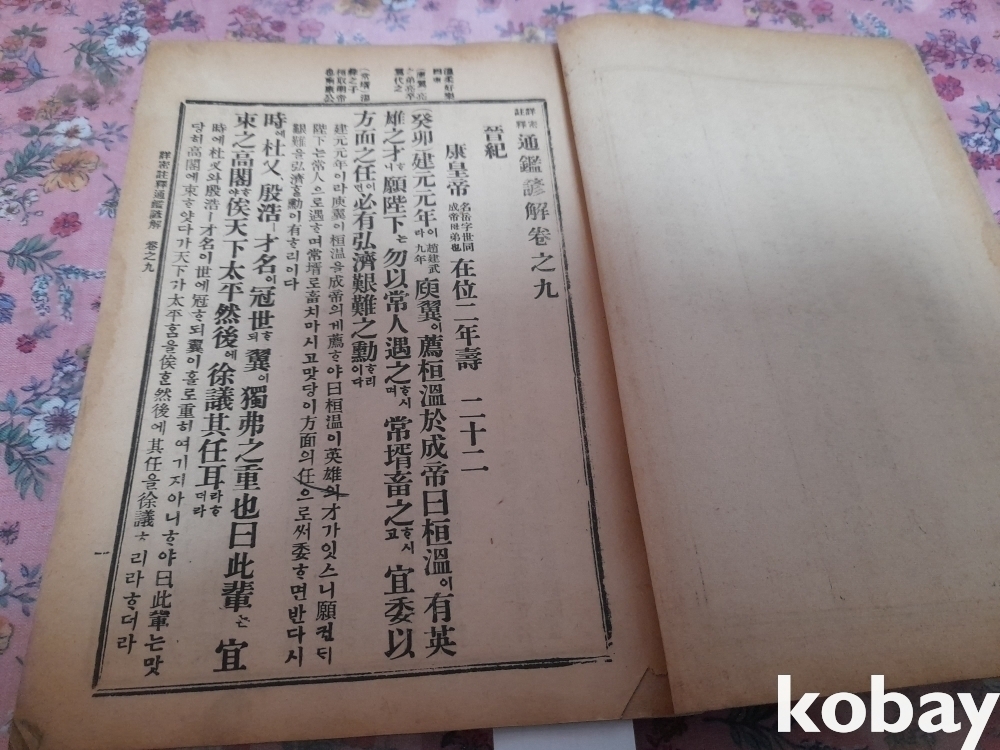 詳密註釋 通鑑諺解卷之九
晉紀
康皇帝 名岳字世同成帝母弟也 在位二年壽 二十二
(癸卯)建元元年이라 趙建武九年 庾翼이薦桓溫於成帝曰桓溫이有英
雄之才니願陛下는勿以常人遇之ᄒᆞ시며常壻畜之ᄒᆞ시고宜委以
方面之任이면必有弘濟艱難之勳ᄒᆞ리이다
建元元年이라庾翼이桓溫을成帝의게薦ᄒᆞ야曰桓溫이英雄의才가잇스니願컨ᄃᆡ
陛下는常人으로遇ᄒᆞ며常壻로畜치마시고맛당이方面의任으로써委ᄒᆞ면반다시
艱難을弘濟ᄒᆞᆯ勳이有ᄒᆞ리이다
時에杜乂、殷浩ㅣ才名이冠世ᄒᆞ되翼이獨弗之重也曰此輩는宜
束之高閣ᄒᆞ야俟天下太平然後에徐議其任耳라ᄒᆞ더라
時에杜乂와殷浩ㅣ才名이世에冠ᄒᆞ되翼이홀로重히여기지아니ᄒᆞ야曰此輩는맛
당히高閣에束ᄒᆞ얏다가天下가太平홈을俟ᄒᆞᆫ然後에其任을徐議ᄒᆞ리라ᄒᆞ더라
詳密註釋通鑑諺解 卷之九
一
kobay